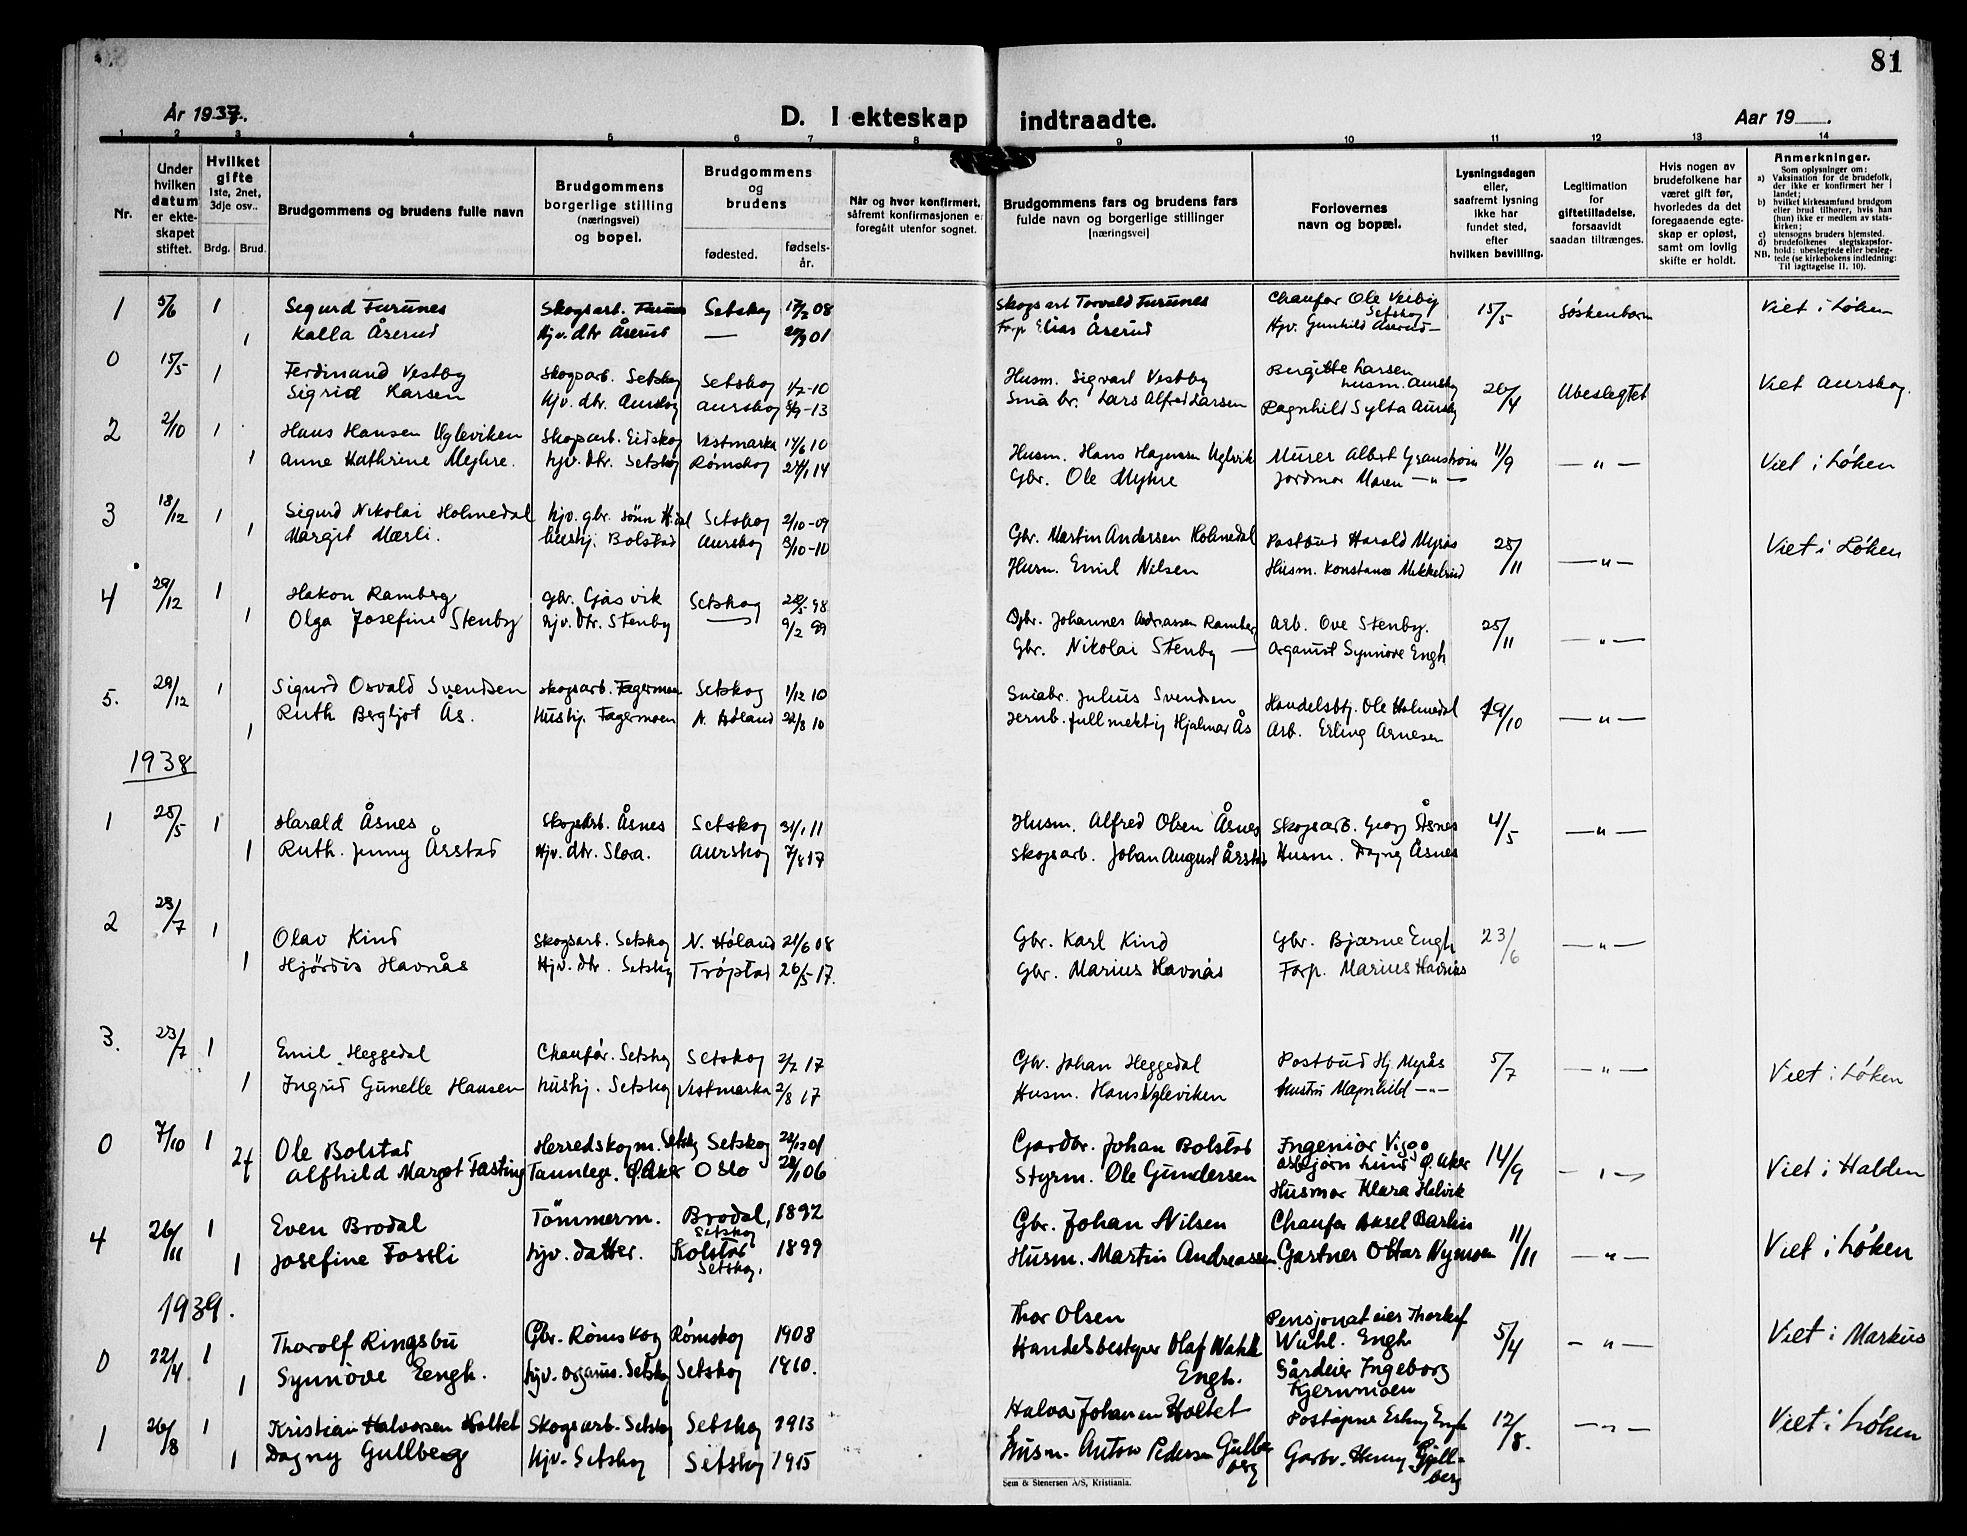 81
År 1937.
D. I ekteskap indtraadte.
Aar 19 .
1 2 3 4 5 6 7 8 9 10 11 12 13 14
Nr.
Under hvilken datum er ekteskapet stiftet.
Hvilket gifte 1ste, 2net, 3dje osv..
Brdg. Brud.
Brudgommens og brudens fulle navn
Brudgommens borgerlige stilling (næringsvei) og bopel.
Brudgommens og brudens
fødested. fødsels-år.
Når og hvor konfirmert, såfremt konfirmasjonen er foregått utenfor sognet.
Brudgommens fars og brudens fars fulde navn og borgerlige stillinger [næringsvei]
Forlovernes navn og bopæl.
Lysningsdagen eller, saafremt lysning ikke har fundet sted, efter hvilken bevilling.
Legitimation for giftetilladelse, forsaavidt saadan tiltrænges.
Hvis nogen av brudefolkene har været gift før, hvorledes da det foregaaende egteskap er opløst, samt om lovlig skifte er holdt.
Anmerkninger.
Som oplysninger om:
a) Vaksination for de brudefolk, der ikke er konfirmert her i landet;
b) hvilket kirkesamfund brudgom eller brud tilhører, hvis han (hun) ikke er medlem av statskirken;
c) utensogns bruders hjemsted.
d) brudefolkenes slegtskapsforhold: ubeslegtede eller beslegtede (se kirkebokens indledning:
NB. Til iagttagelse II. 10).
1 5/6 1 Sigurd Furunes Skogsarb. Furunes Setskog 17/2 08 Skogsarb Torvald Furunes Chaufør Ole Veiby Setskog 15/5 Søskenbarn Viet i Løken
1 Kalla Åserud Hjv. dtr Åserud — 01 Forp Elias Åserud Hjv. Gunhild Åserud —
0 15/5 1 Ferdinand Vestby Skogsarb. Setskog Setskog 1/2-10 Husm. Sigvart Vestby Birgitte Larsen husm. Aurskog 26/4 Ubeslegtet Viet Aurskog.
Sigrid Larsen Hjv. dtr. Aurskog Aurskog -13 Små br. Lars Alfred Larsen Ragnhild Sylta Aurskog
2 2/10 1 Hans Hansen Ugleviken Skogsarb. Eidskog Vestmarka 17/6 10 Husm. Hans Hagensen Uglvik Murer Albert Granstrøm 11/9 — " — Viet i Løken
1 Anne Kathrine Myhre. hjv. dtr. Setskog Rømskog 27/1 14 Gbr. Ole Myhre Jordmor Maren — " —
3 18/12 1 Sigurd Nikolai Holmedal hjv. gbr. sønn Setskog 2/10-09 Gbr. Martin Andersen Holmedal Postbud Harald Myrås 25/11 — " — Viet i Løken
1 Margit Mærli. Hushj. Bolstad Aurskog 3/10-10 Husm. Emil Nilsen Husm. Konstanse Mikkelrud
4 29/12 1 Håkon Ramberg gbr. Gåsvik Setskog 28/5-98 Gbr. Johannes Andreassen Ramberg Arb. Ove Stenby. 25/11 — " —
1 Olga Josefine Stenby hjv. dtr. Stenby — 9/2 99 Gbr. Nikolai Stenby — Organist Synnøve Engh
5. 29/12 1 Sigurd Osvald Svendsen Skogsarb. Fagermoen Setskog 1/12 10 Småbr. Julius Svendsen Handelsbtj. Ole Holmedal 19/10 — " —
1 Ruth Bergljot Ås. Hushj. Fagermoen N. Høland 22/8 10 Jernb. fullmektig Hjalmar Ås Arb. Erling Arnesen
1938
1 25/5 1 Harald Åsnes Skogsarb. Åsnes Setskog 31/1 11 Husm. Alfred Olsen Åsnes Skogsarb. Georg Åsnes 4/5 — " —
1 Ruth Jenny Årstad Hjv. dtr. Slora. Aurskog 7/8 17 Skogsarb. Johan August Årstad Husm. Dagny Åsnes
2 23/7 1 Olav Kind Skogsarb. Setskog N. Høland 21/6 08 Gbr. Karl Kind Gbr. Bjarne Engh 23/6 — " —
1 Hjördis Havnås Hjv. dtr. Setskog Trøgstad 26/5 17. Gbr. Marius Havnås Forp. Marius Havnås
3. 23/7 1 Emil Heggedal Chauför. Setskog Setskog 2/2 17 Gbr. Johan Heggedal Postbud Hj. Myrås 5/7 — " — Viet i Løken
1 Ingrid Gunelle Hansen hushj. Setskog Vestmarka 2/8 17 Husm. Hans Ugleviken Hustru Magnhild — " —
0 7/10 1 Ole Bolstad Herredskogm. Setskog Setskog 22/12 01 Gardbr. Johan Bolstad Ingeniør Viggo Asbjørn Lund Ø. Aker 14/9 — " — Viet i Halden
2f Alfhild Margot Fasting Tannlege. Ø. Aker Oslo 28/1 06 Styrm. Ole Gundersen Husmor Klara Helvik
4 26/11 1 Even Brodal Tömmerm. Brodal, Setskog 1892 Gbr. Johan Nilsen Chaufør Aksel Barlin 11/11 — " — Viet i Løken
1 Josefine Fossli hjv. datter. Kolstad Setskog. 1899 Husm. Martin Andreassen Gartner Ottar Nymoen
1939.
0 22/4 1 Thorolf Ringsbu Gbr. Rømskog Rømskog 1908 Thor Olsen Pensjonateier Thorleif Wuhl. Engh 5/4 — " — Viet i Markus
1 Synnöve Eengh. hjv. organis. Setskog Setskog 1910. Handelsbestyrer Olaf Wahl Engh. Gårdeier Ingeborg Kjernmoen
1 26/8 1 Kristian Halvorsen Holtet Skogsarb. Setskog Setskog 1913 Halvor Johansen Holtet Poståpner Erling Engh 12/8. — " — Viet i Løken
1 Dagny Gullberg Hjv. Setskog Setskog 1915 Husm. Anton Pedersen Gullberg Garbr. Henry Gullberg
Sem & Stenersen A/S, Kristiania.